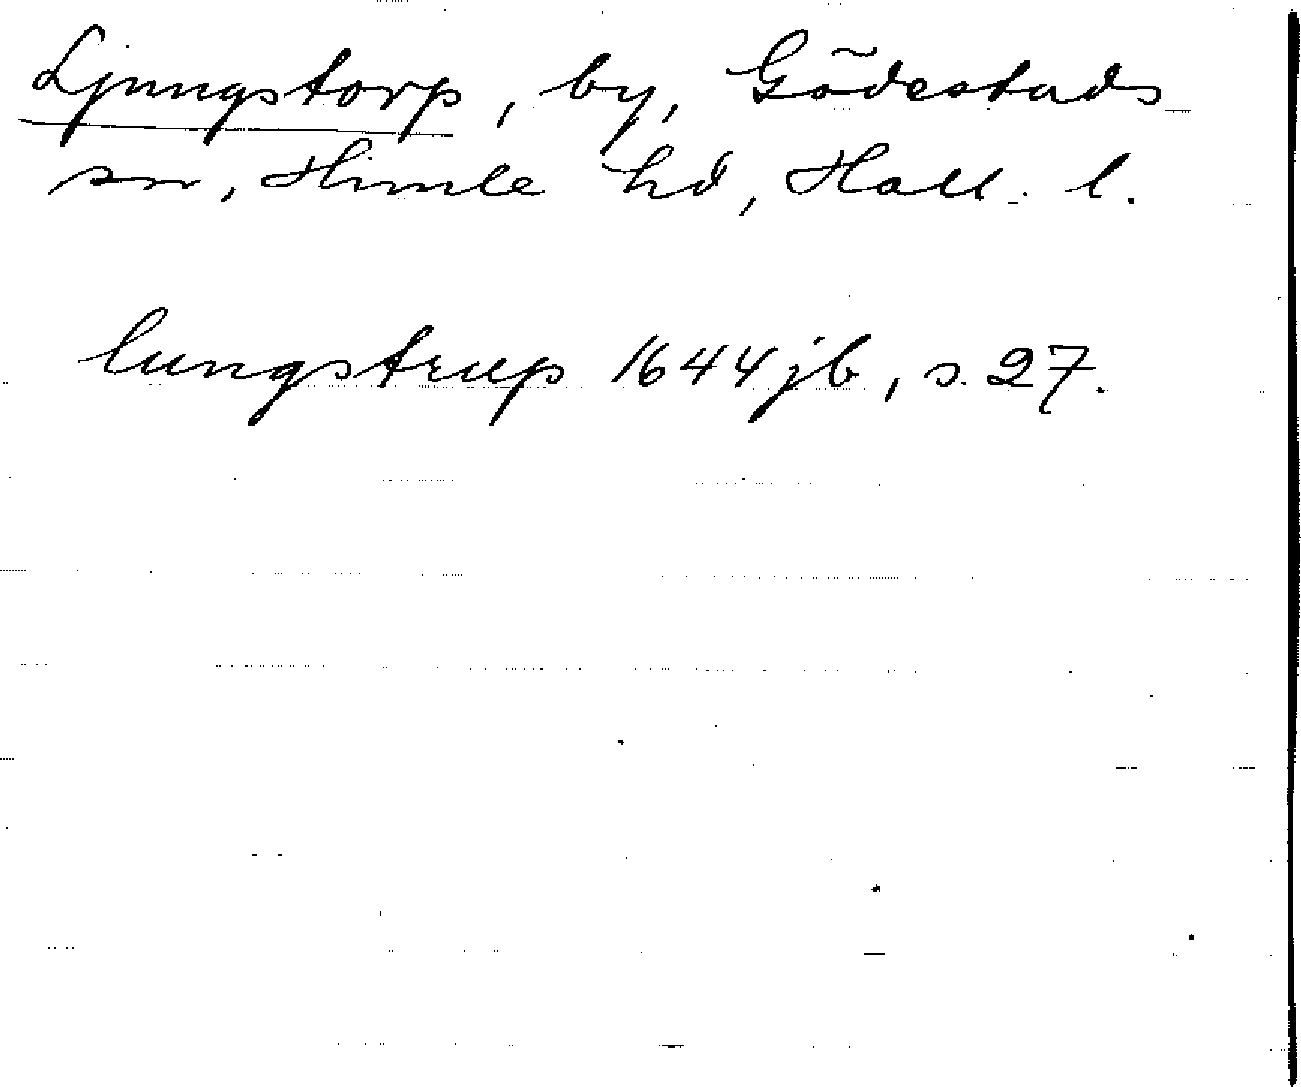 Ljungstorp, by, Gödestads
sn, Himle hd, Hall. l.
lungstrup 1644 jb, s. 27.